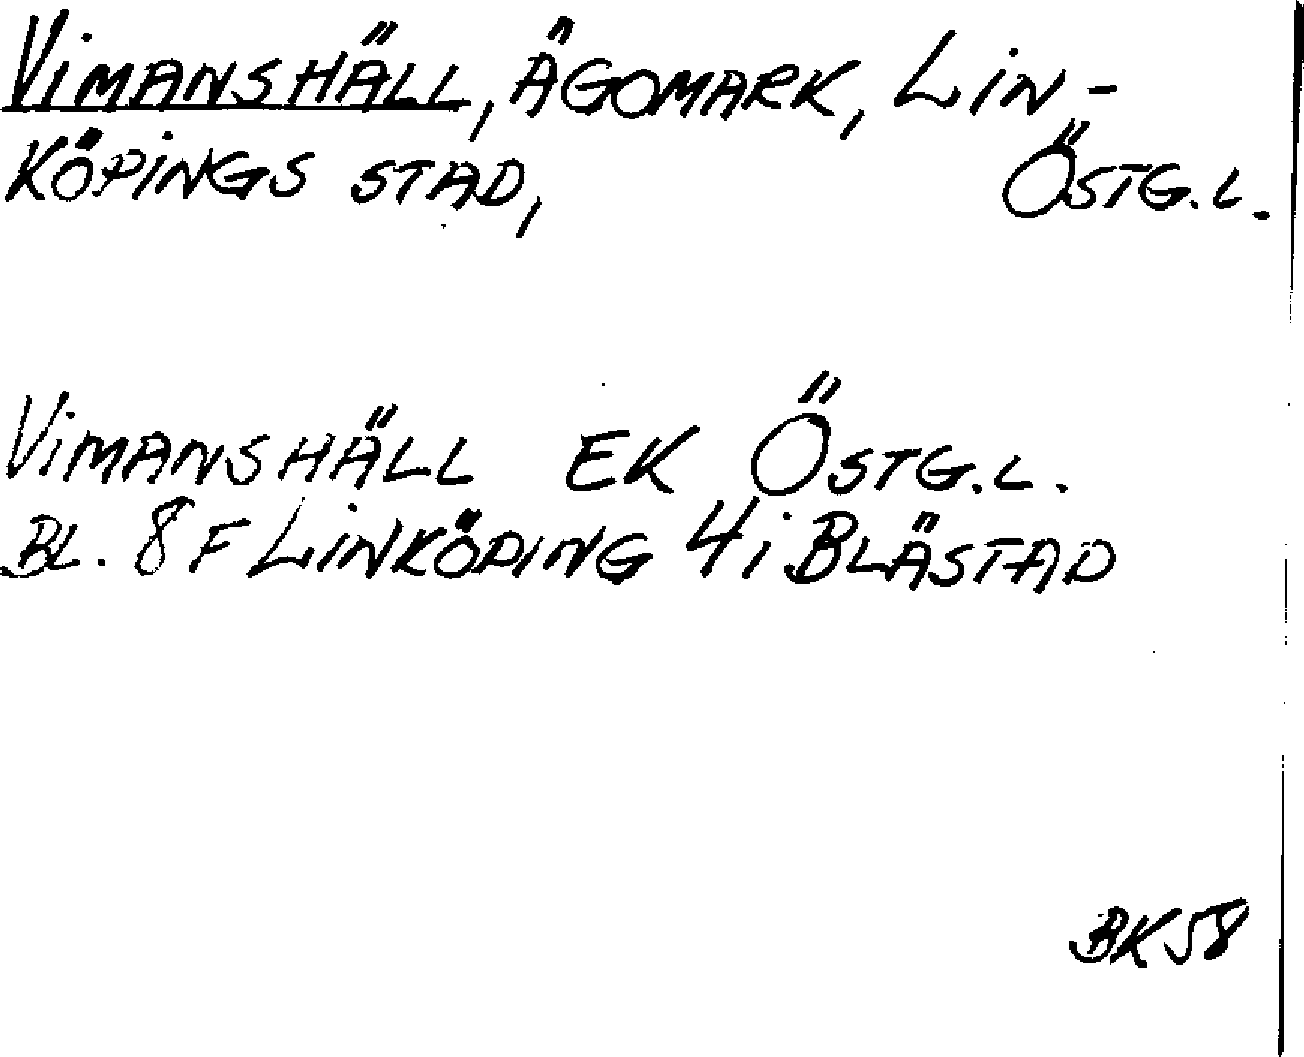 VIMANSHÄLL, ÄGOMARK, LIN-
KÖPINGS STAD, ÖSTG.L.
VIMANSHÄLL EK ÖSTG.L.
BL. 8 F LINKÖPING 4 i BLÄSTAD
BK58